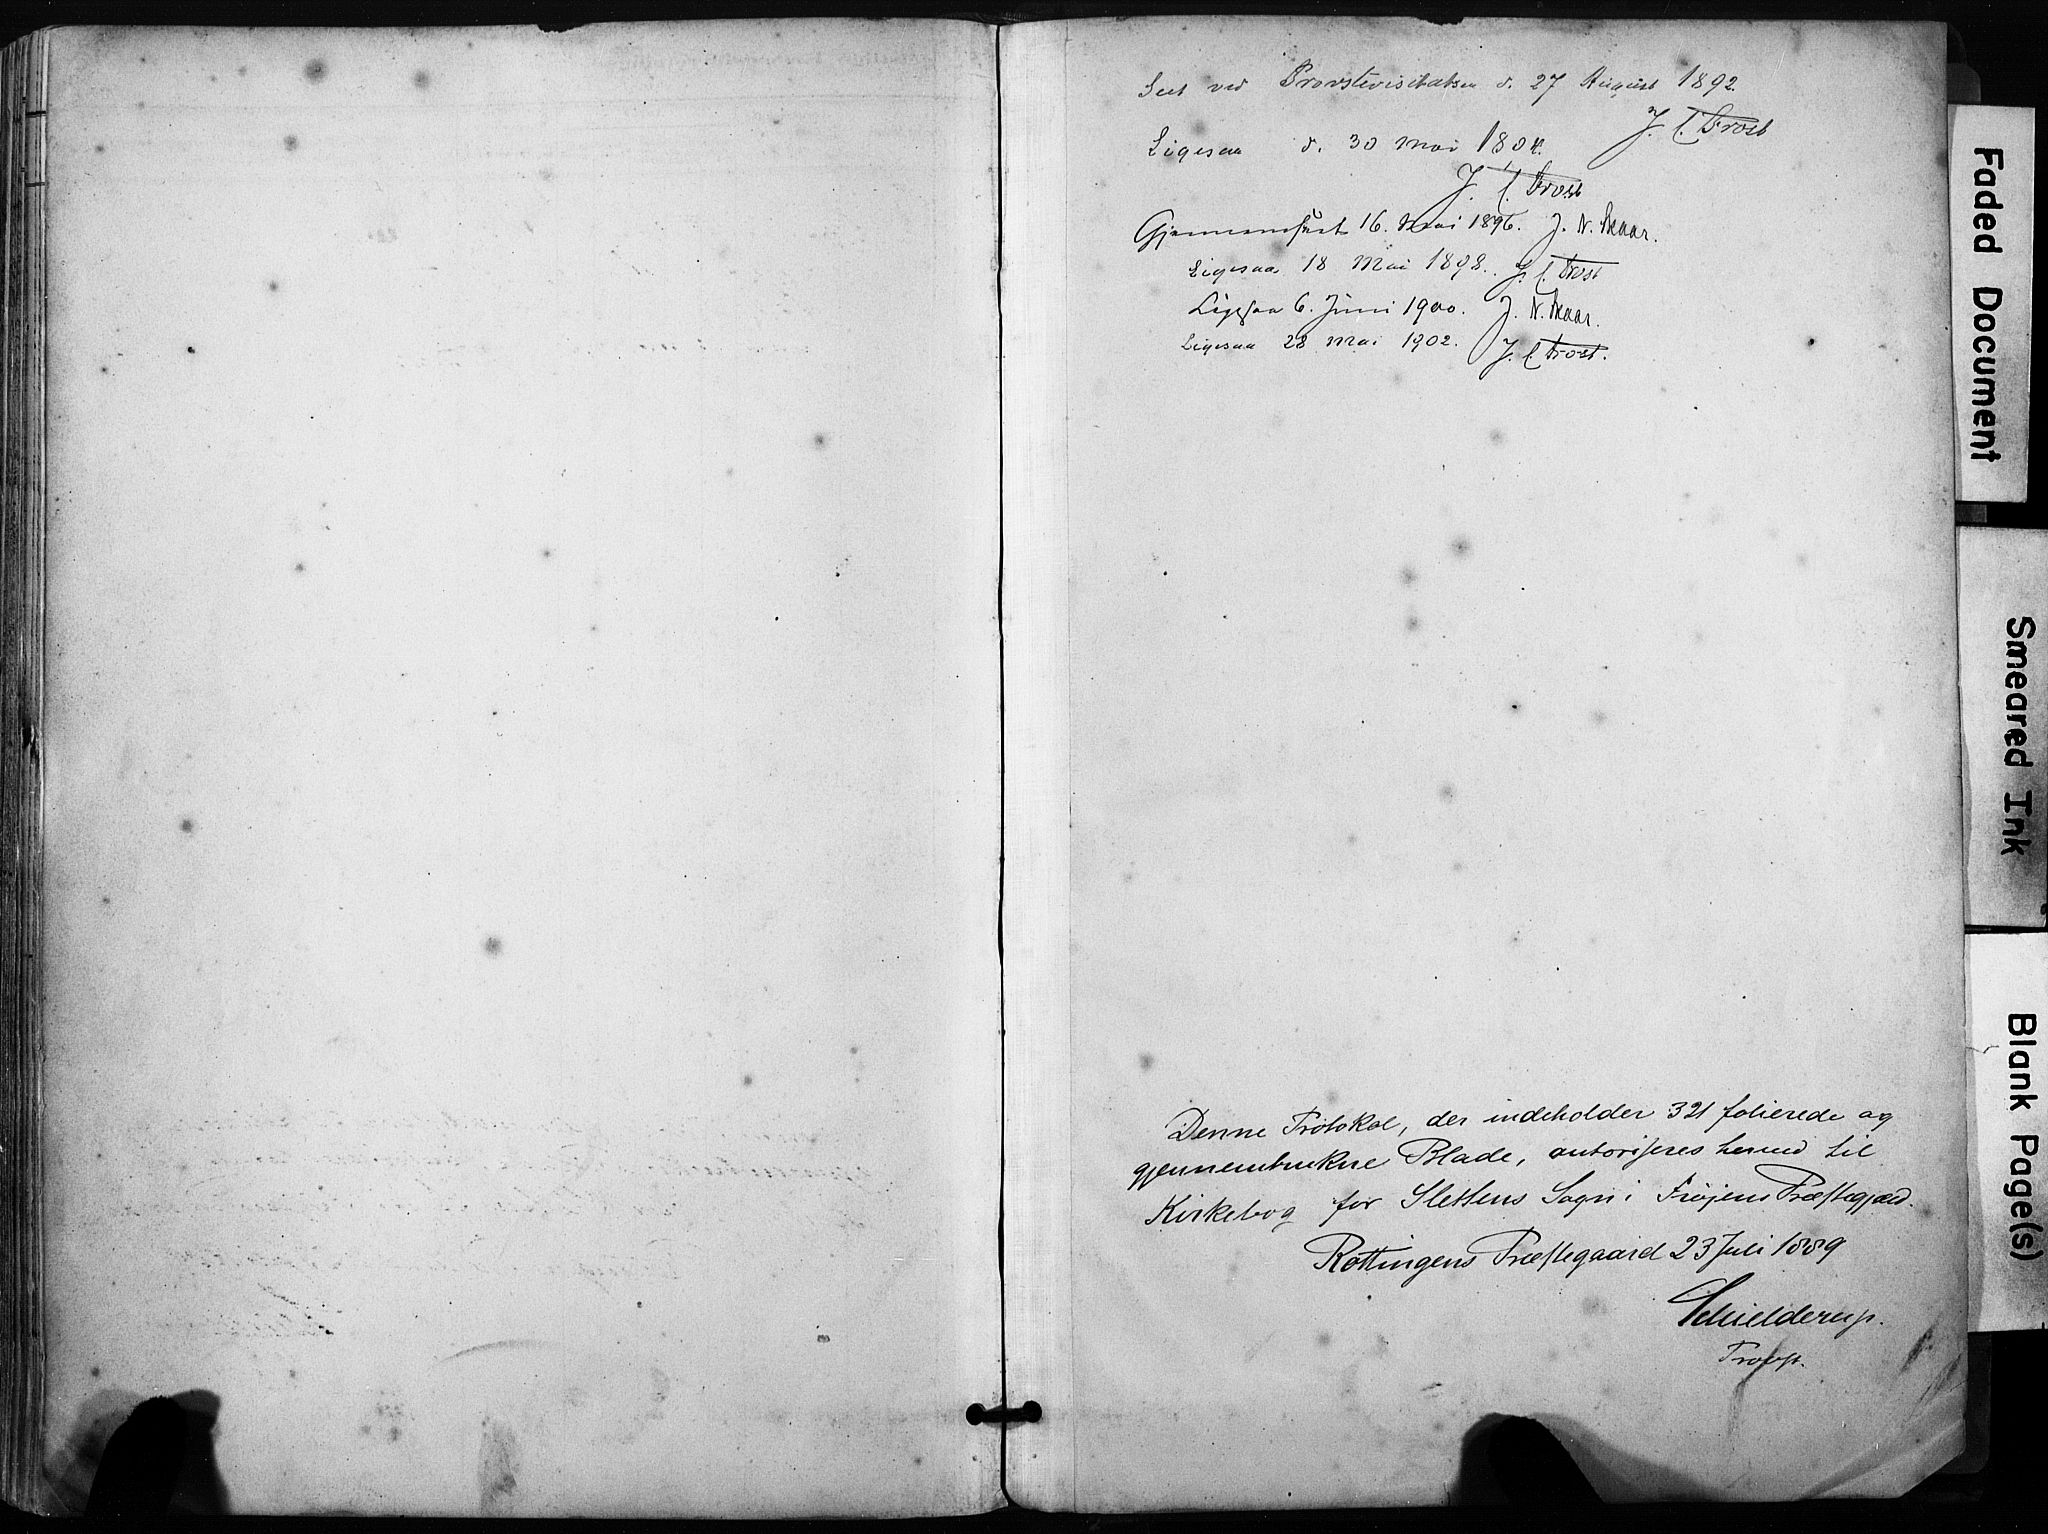 Seet ved Provstevisitatsen d. 27 August 1892.
J. C. Frost
Ligesaa d. 30 Mai 1894.
J. C. Frost
Gjennemseet 16. Mai 1896. J. N. Skaar.
Ligesaa 18 Mai 1898. J. C. Frost
Ligesaa 6. Juni 1900. J. N. Skaar.
Ligesaa 28 Mai 1902. J. C. Frost.
Denne Protokol, der indeholder 321 folierede og
gjennemtrukne Blade, autoriseres herved til
Kirkebog for Slettens Sogn i Frøjens Præstegjæld.
Rottingens Præstegaard 23 Juli 1889
Schielderup.
Provst.
Faded Document
Smeared Ink
Blank Page(s)